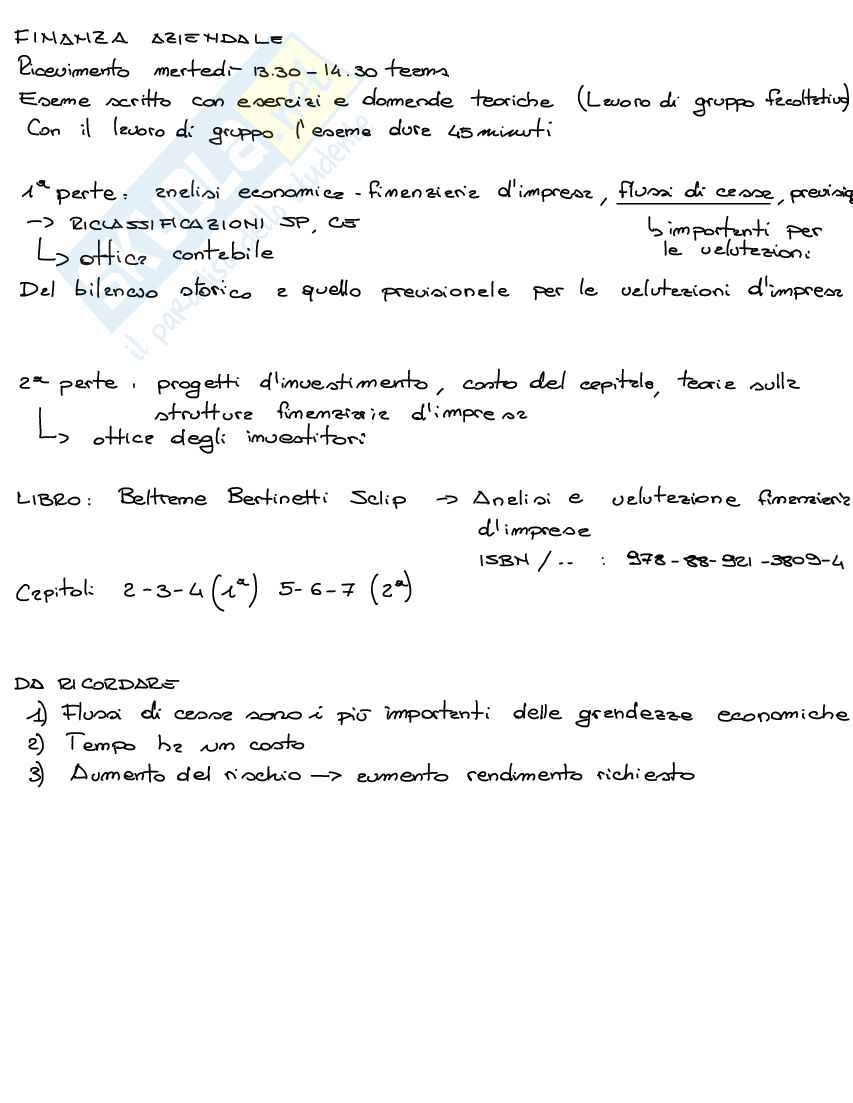 FINANZA AZIENDALE
Ricevimento martedì 13.30 - 14.30 teams
Esame scritto con esercizi e domande teoriche (Lavoro di gruppo facoltativo)
Con il lavoro di gruppo l'esame dura 45 minuti
1ª parte: analisi economica - finanziaria d'impresa, flussi di cassa, previsio
-> RICLASSIFICAZIONI SP, CE
↳ importanti per
le valutazioni
↳ ottica contabile
Dal bilancio storico a quello previsionale per le valutazioni d'impresa
2ª parte: progetti d'investimento, costo del capitale, teorie sulla
struttura finanziaria d'impresa
↳ ottica degli investitori
LIBRO: Beltrame Bertinetti Sclip -> Analisi e valutazione finanziaria
d'impresa
ISBN /.. : 978-88-921-3809-4
Capitoli 2-3-4 (1ª) 5-6-7 (2ª)
DA RICORDARE
1) Flussi di cassa sono i più importanti delle grandezze economiche
2) Tempo ha un costo
3) Aumento del rischio -> aumento rendimento richiesto
SKUOLA.net
il paradiso dello studente